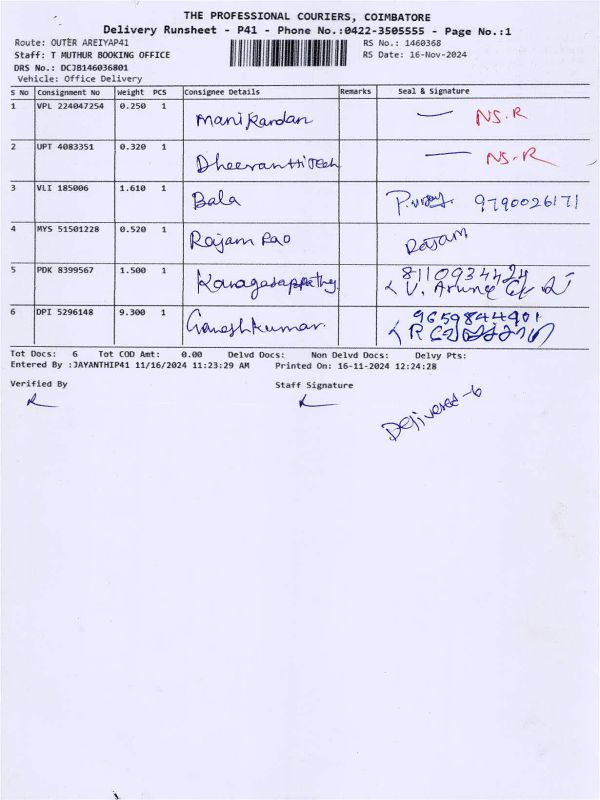 THE PROFESSIONAL COURIERS, COIMBATORE
Delivery Runsheet - P41 - Phone No.:0422-3505555 - Page No.:1
Route: OUTER AREIYAP41 RS No.: 1460368
Staff: T MUTHUR BOOKING OFFICE RS Date: 16-Nov-2024
DRS No.: DCJB146036801
Vehicle: Office Delivery
S No Consignment No Weight PCS Consignee Details Remarks Seal & Signature
1 VPL 224047254 0.250 1 Manikandan — NS.R
2 UPT 4083351 0.320 1 — NS-R
3 VLI 185006 1.610 1 Bala 9790026171
4 MYS 51501228 0.520 1 Rajam Rao Rajam
5 PDK 8399567 1.500 1 8110934424
V. Arun
6 DPI 5296148 9.300 1 Ganeshkumar 9659844901
Tot Docs: 6 Tot COD Amt: 0.00 Delvd Docs: Non Delvd Docs: Delvy Pts:
Entered By :JAYANTHIP41 11/16/2024 11:23:29 AM Printed On: 16-11-2024 12:24:28
Verified By Staff Signature
Delivered-6